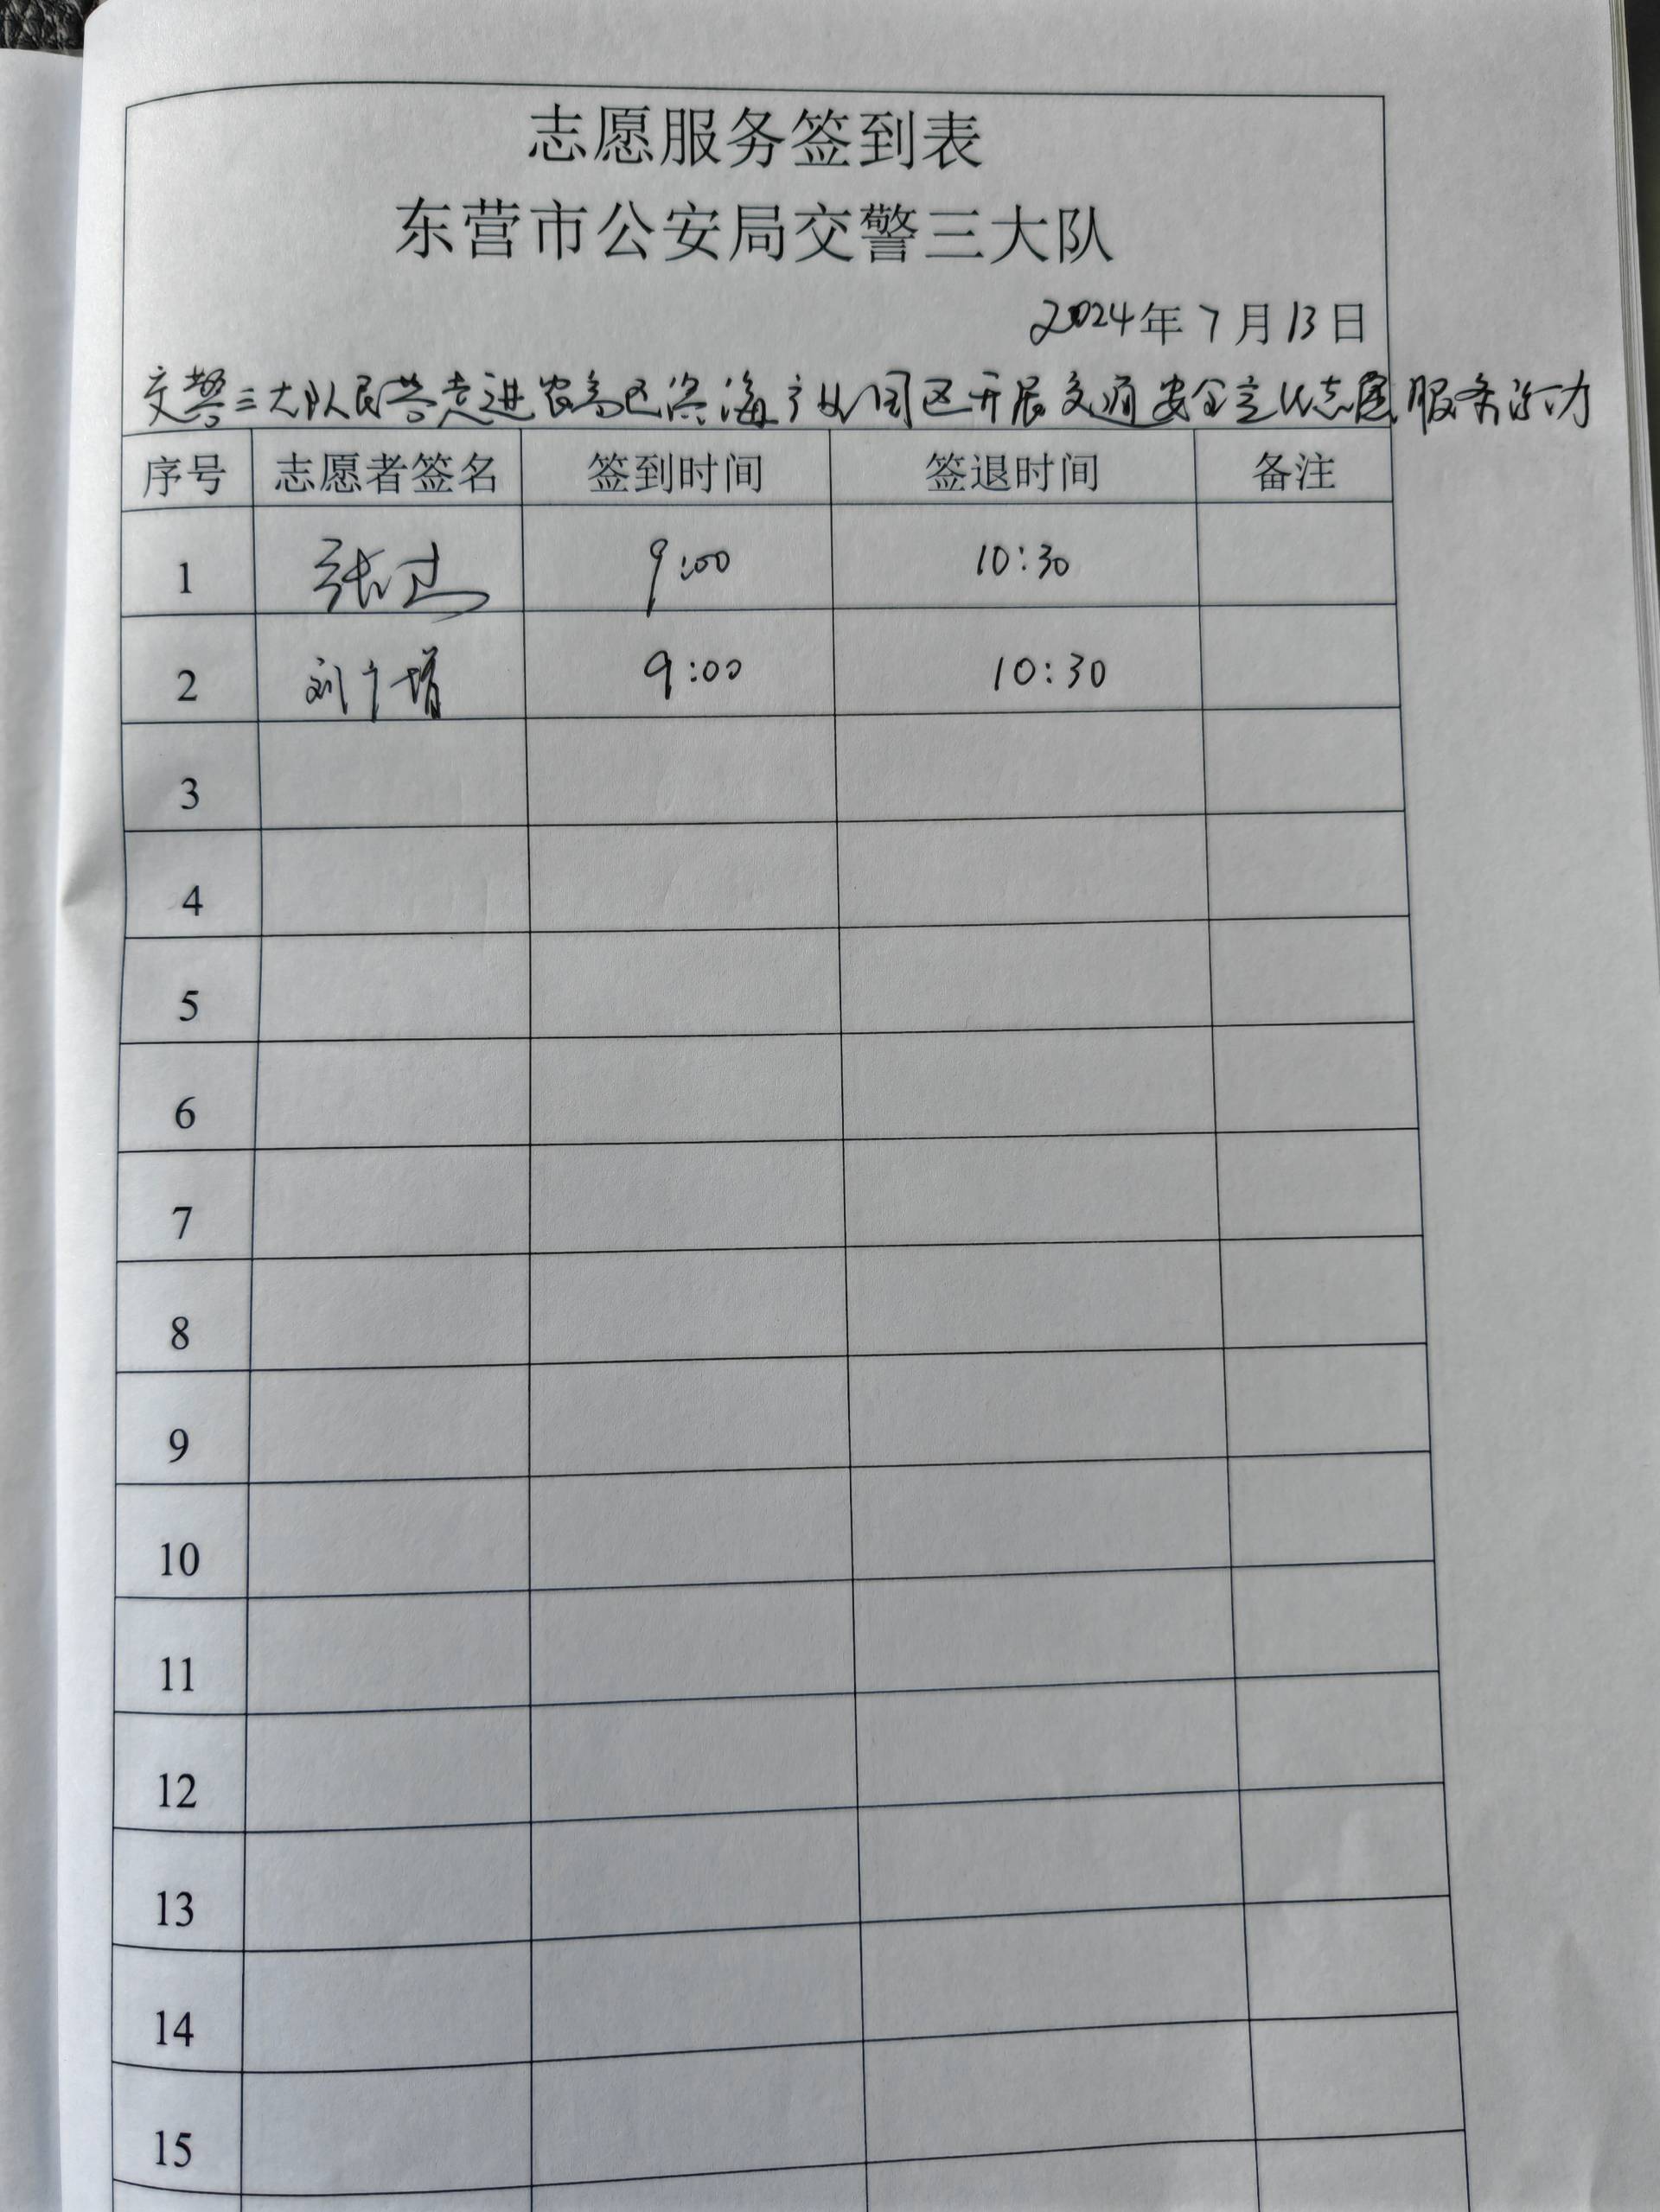 志愿服务签到表
东营市公安局交警三大队
2024年7月13日
交警三大队民警走进农高区滨海产业园区开展交通安全宣传志愿服务活动
序号 志愿者签名 签到时间 签退时间 备注
1 张 9:00 10:30
2 刘 9:00 10:30
3
4
5
6
7
8
9
10
11
12
13
14
15